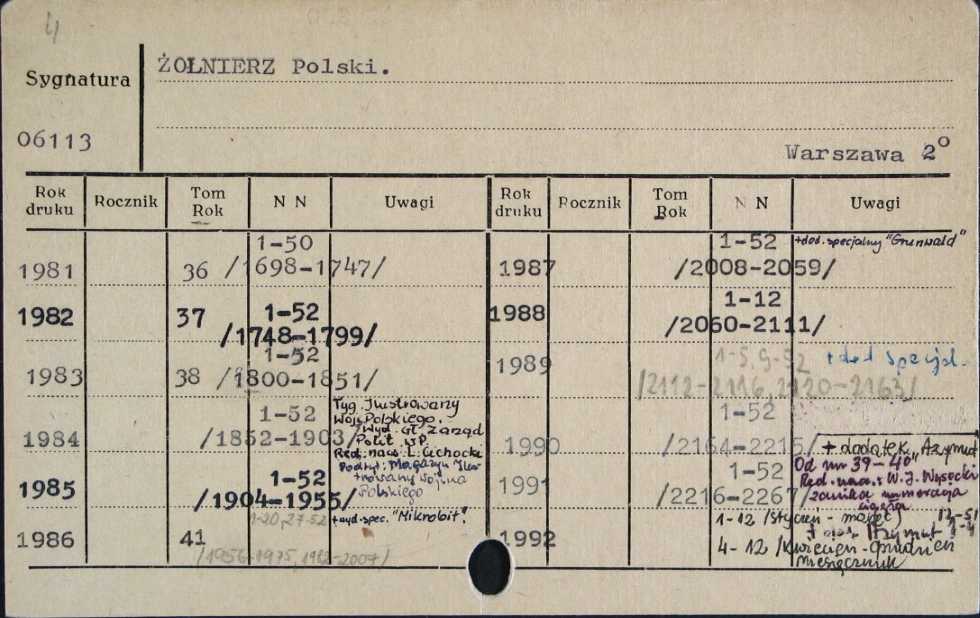 4
ŻOŁNIERZ Polski.
Sygnatura
06113
Warszawa 2°
Rok druku Rocznik Tom Rok N N Uwagi Rok druku Rocznik Tom Rok N N Uwagi
1981 36 1-50 /1698-1747/
1982 37 1-52 /1748-1799/
1983 38 1-52 /1800-1851/
1984 1-52 /1852-1903/
Tyg. Ilustrowany
Wojs. Polskiego.
Wyd. Gł. Zarząd
Polit. WP.
Red. nacz. L. Cichocki
1985 1-52 /1904-1955/
Podtyt: Magazyn Ilu-
strowany Wojska
Polskiego
1986 41 1-20, 27-52 + wyd. spec. "Mikrobit".
/1956-1975, 1982-2007/
1987 1-52 /2008-2059/ + dod. specjalny "Grunwald"
1988 1-12 /2060-2111/
1989 1-5, 9-52 + dod specjal.
/2112-2116, 2120-2163/
1990 1-52 /2164-2215/ + dodatek "Azymut
1991 1-52 /2216-2267/
Od nr 39-40
Red. nacz: W. J. Wysocki
zanika numeracja
ciągła
1992 1-12 /styczeń - marzec/
4-12 /kwiecień - grudzień
miesięcznik